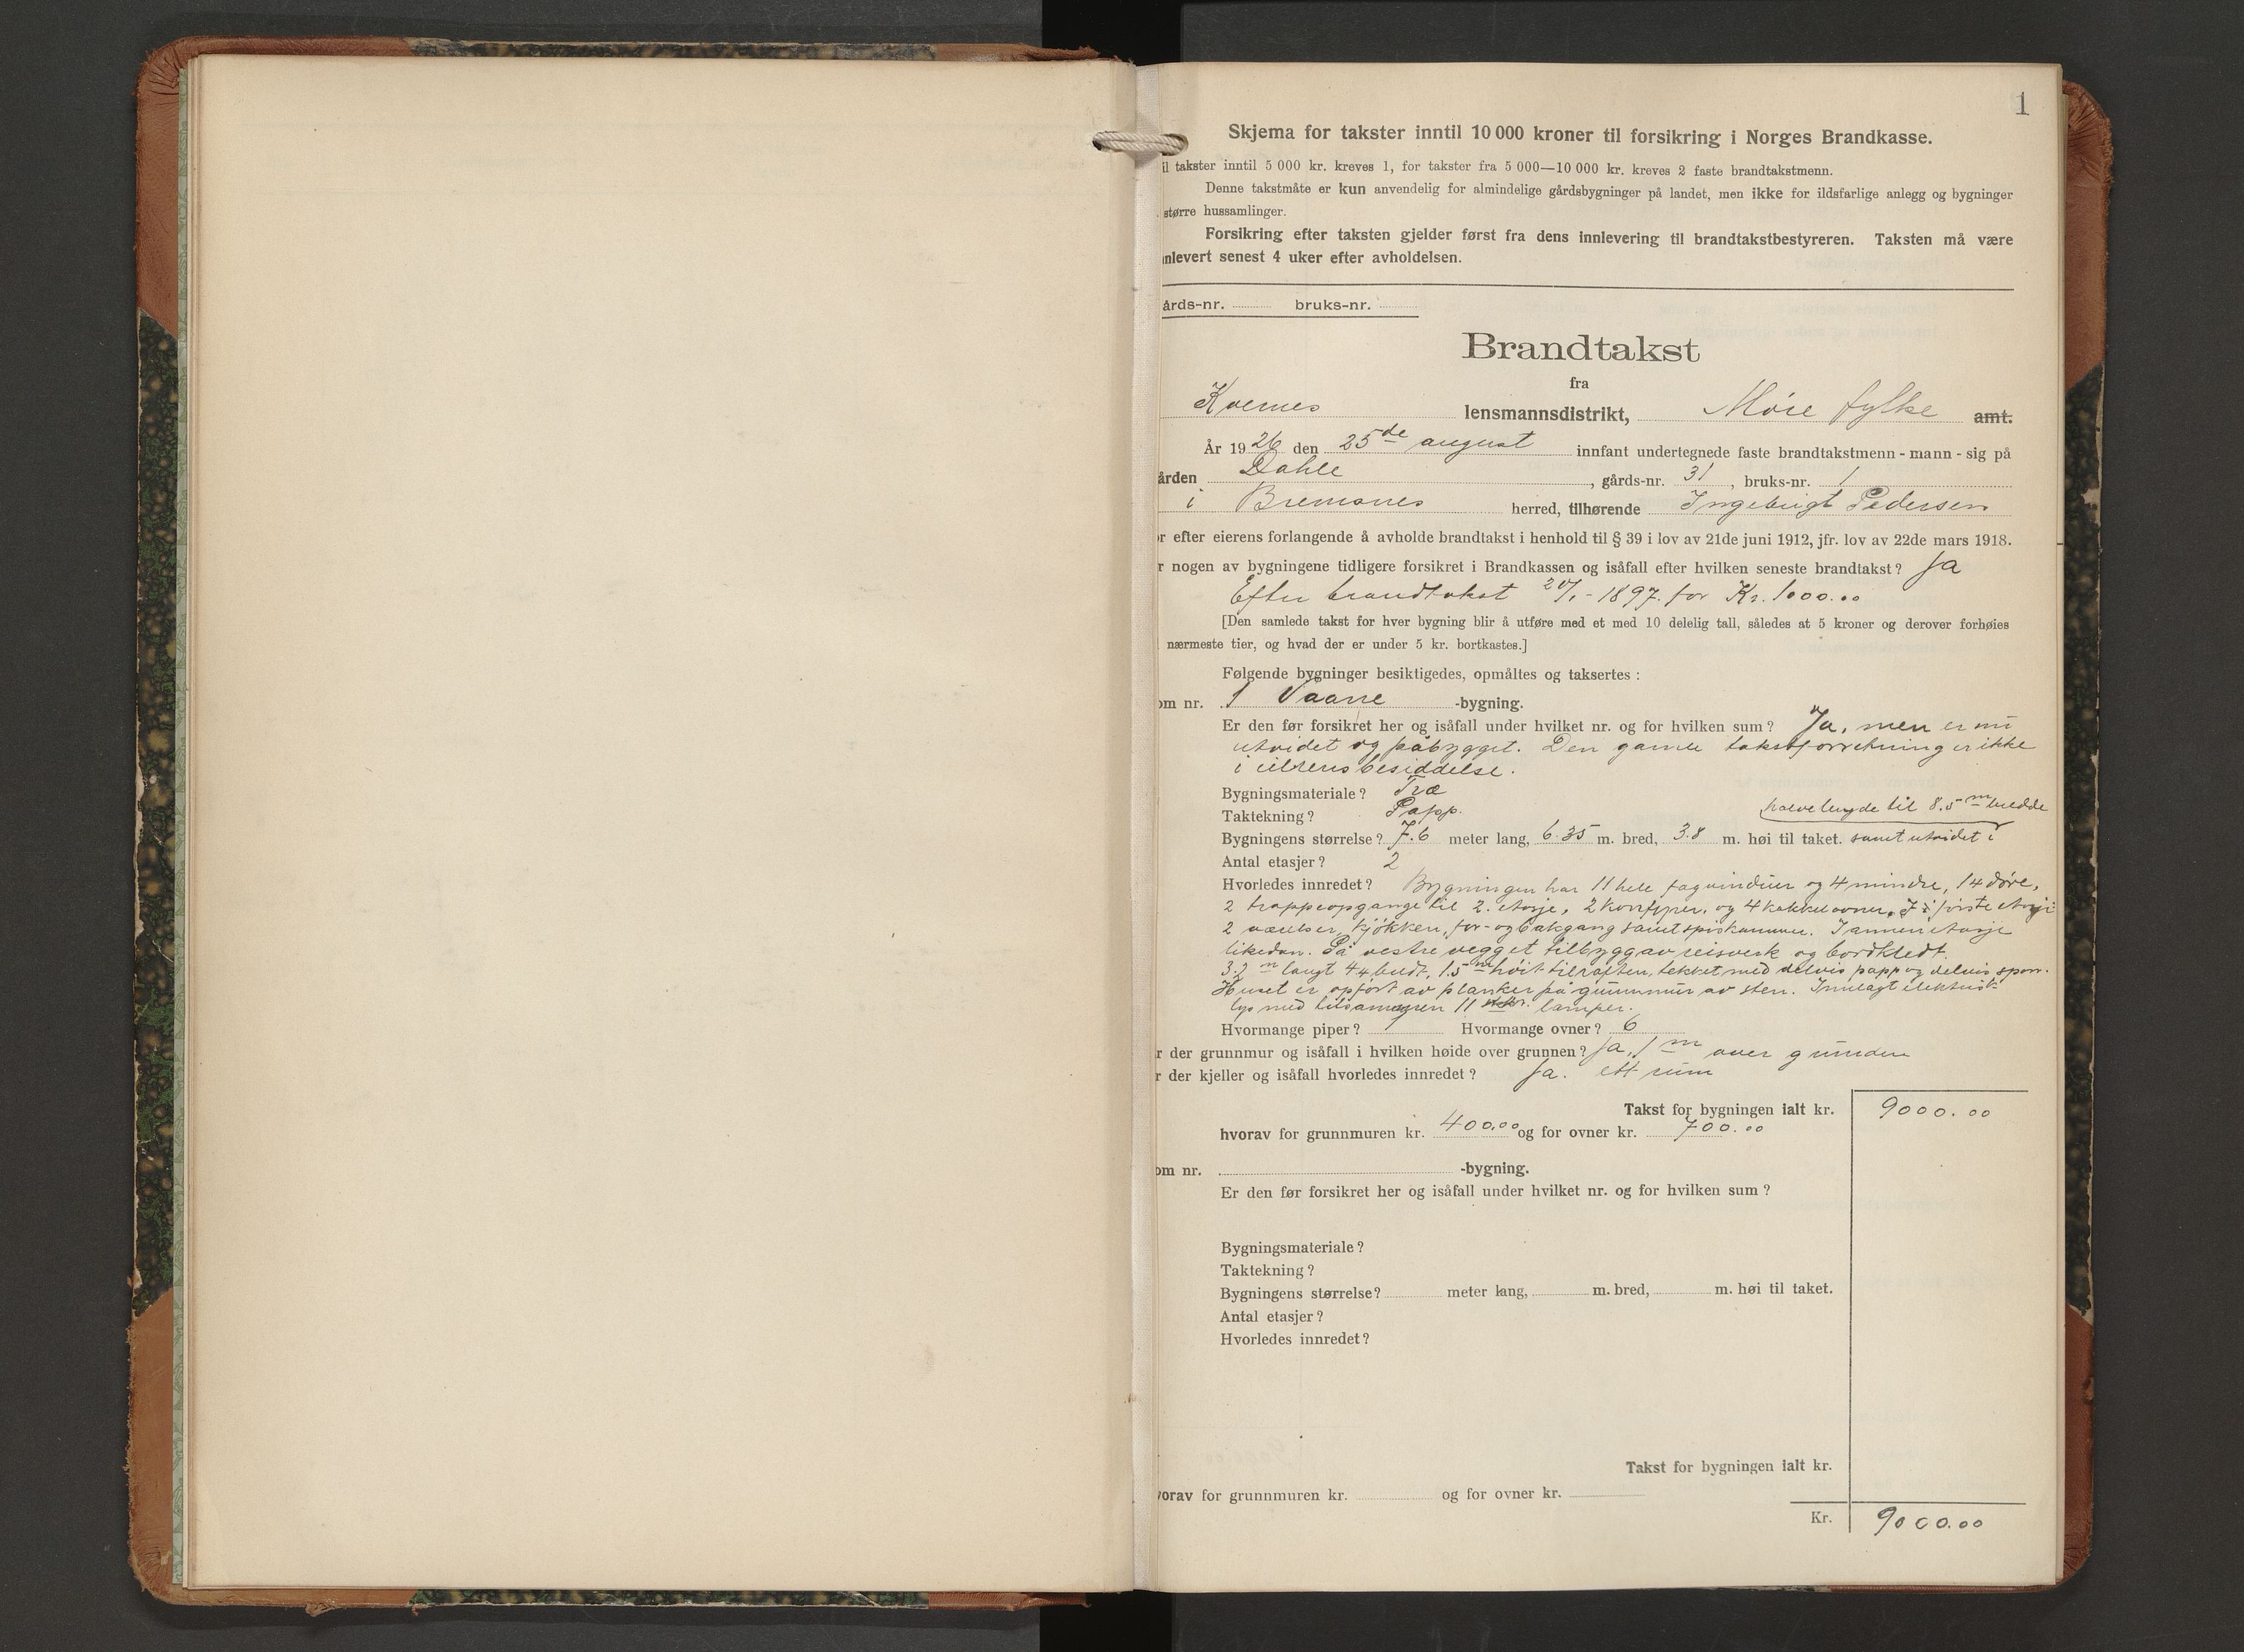 1
Skjema for takster inntil 10 000 kroner til forsikring i Norges Brandkasse.
il takster inntil 5 000 kr. kreves 1, for takster fra 5 000—10 000 kr. kreves 2 faste brandtakstmenn.
Denne takstmåte er kun anvendelig for almindelige gårdsbygninger på landet, men ikke for ildsfarlige anlegg og bygninger
større hussamlinger.
Forsikring efter taksten gjelder først fra dens innlevering til brandtakstbestyreren. Taksten må være
nlevert senest 4 uker efter avholdelsen.
årds-nr. bruks-nr.
Brandtakst
fra
Kvernes lensmannsdistrikt, Møre fylke amt.
År 1926 den 25de august innfant undertegnede faste brandtakstmenn - mann - sig på
ården Dahle, gårds-nr. 31, bruks-nr. 1
i Bremsnes herred, tilhørende Ingebrigt Pedersen
r efter eierens forlangende å avholde brandtakst i henhold til § 39 i lov av 21de juni 1912, jfr. lov av 22de mars 1918.
r nogen av bygningene tidligere forsikret i Brandkassen og isåfall efter hvilken seneste brandtakst? Ja
Efter brandtakst 20/1-1897. for Kr. 1000.00
[Den samlede takst for hver bygning blir å utføre med et med 10 delelig tall, således at 5 kroner og derover forhøies
nærmeste tier, og hvad der er under 5 kr. bortkastes.]
Følgende bygninger besiktigedes, opmåltes og taksertes :
om nr. 1 Vaane -bygning.
Er den før forsikret her og isåfall under hvilket nr. og for hvilken sum? Ja, men er nu
utvidet og påbygget. Den gamle takstforretning er ikke
i eierens besiddelse.
Bygningsmateriale? Træ
Taktekning? Papp.
halve lengde til 8.5 m bredde
Bygningens størrelse? 7.6 meter lang, 6.35 m. bred, 3.8 m. høi til taket. samt utvidet i
Antal etasjer? 2
Hvorledes innredet? Bygningen har 11 hele fagvinduer og 4 mindre, 14 døre,
2 trappeopgange til 2. etasje, 2 komfyrer, og 4 kakkelovner. I første etasje
2 værelser, kjøkken, for- og bakgang samt spiskammer. I annen etasje
likedan. På vestre vegg et tilbygg av reisverk og bordkledt.
3.2 m langt 4.4 bredt, 1.5 m høit til raften, tekket med delvis papp og delvis spon.
Huset er opført av planker på grunnmur av sten. Innlagt elektrisk
lys med tilsammen 11 lamper.
Hvormange piper? 1 Hvormange ovner? 6
r der grunnmur og isåfall i hvilken høide over grunnen? Ja, 1 m over grunden
r der kjeller og isåfall hvorledes innredet? Ja. ett rum
Takst for bygningen ialt kr. 9000.00
hvorav for grunnmuren kr. 400.00 og for ovner kr. 700.00
om nr. -bygning.
Er den før forsikret her og isåfall under hvilket nr. og for hvilken sum?
Bygningsmateriale?
Taktekning?
Bygningens størrelse? meter lang, m. bred, m. høi til taket.
Antal etasjer?
Hvorledes innredet?
Takst for bygningen ialt kr.
vorav for grunnmuren kr. og for ovner kr.
Kr. 9000.00